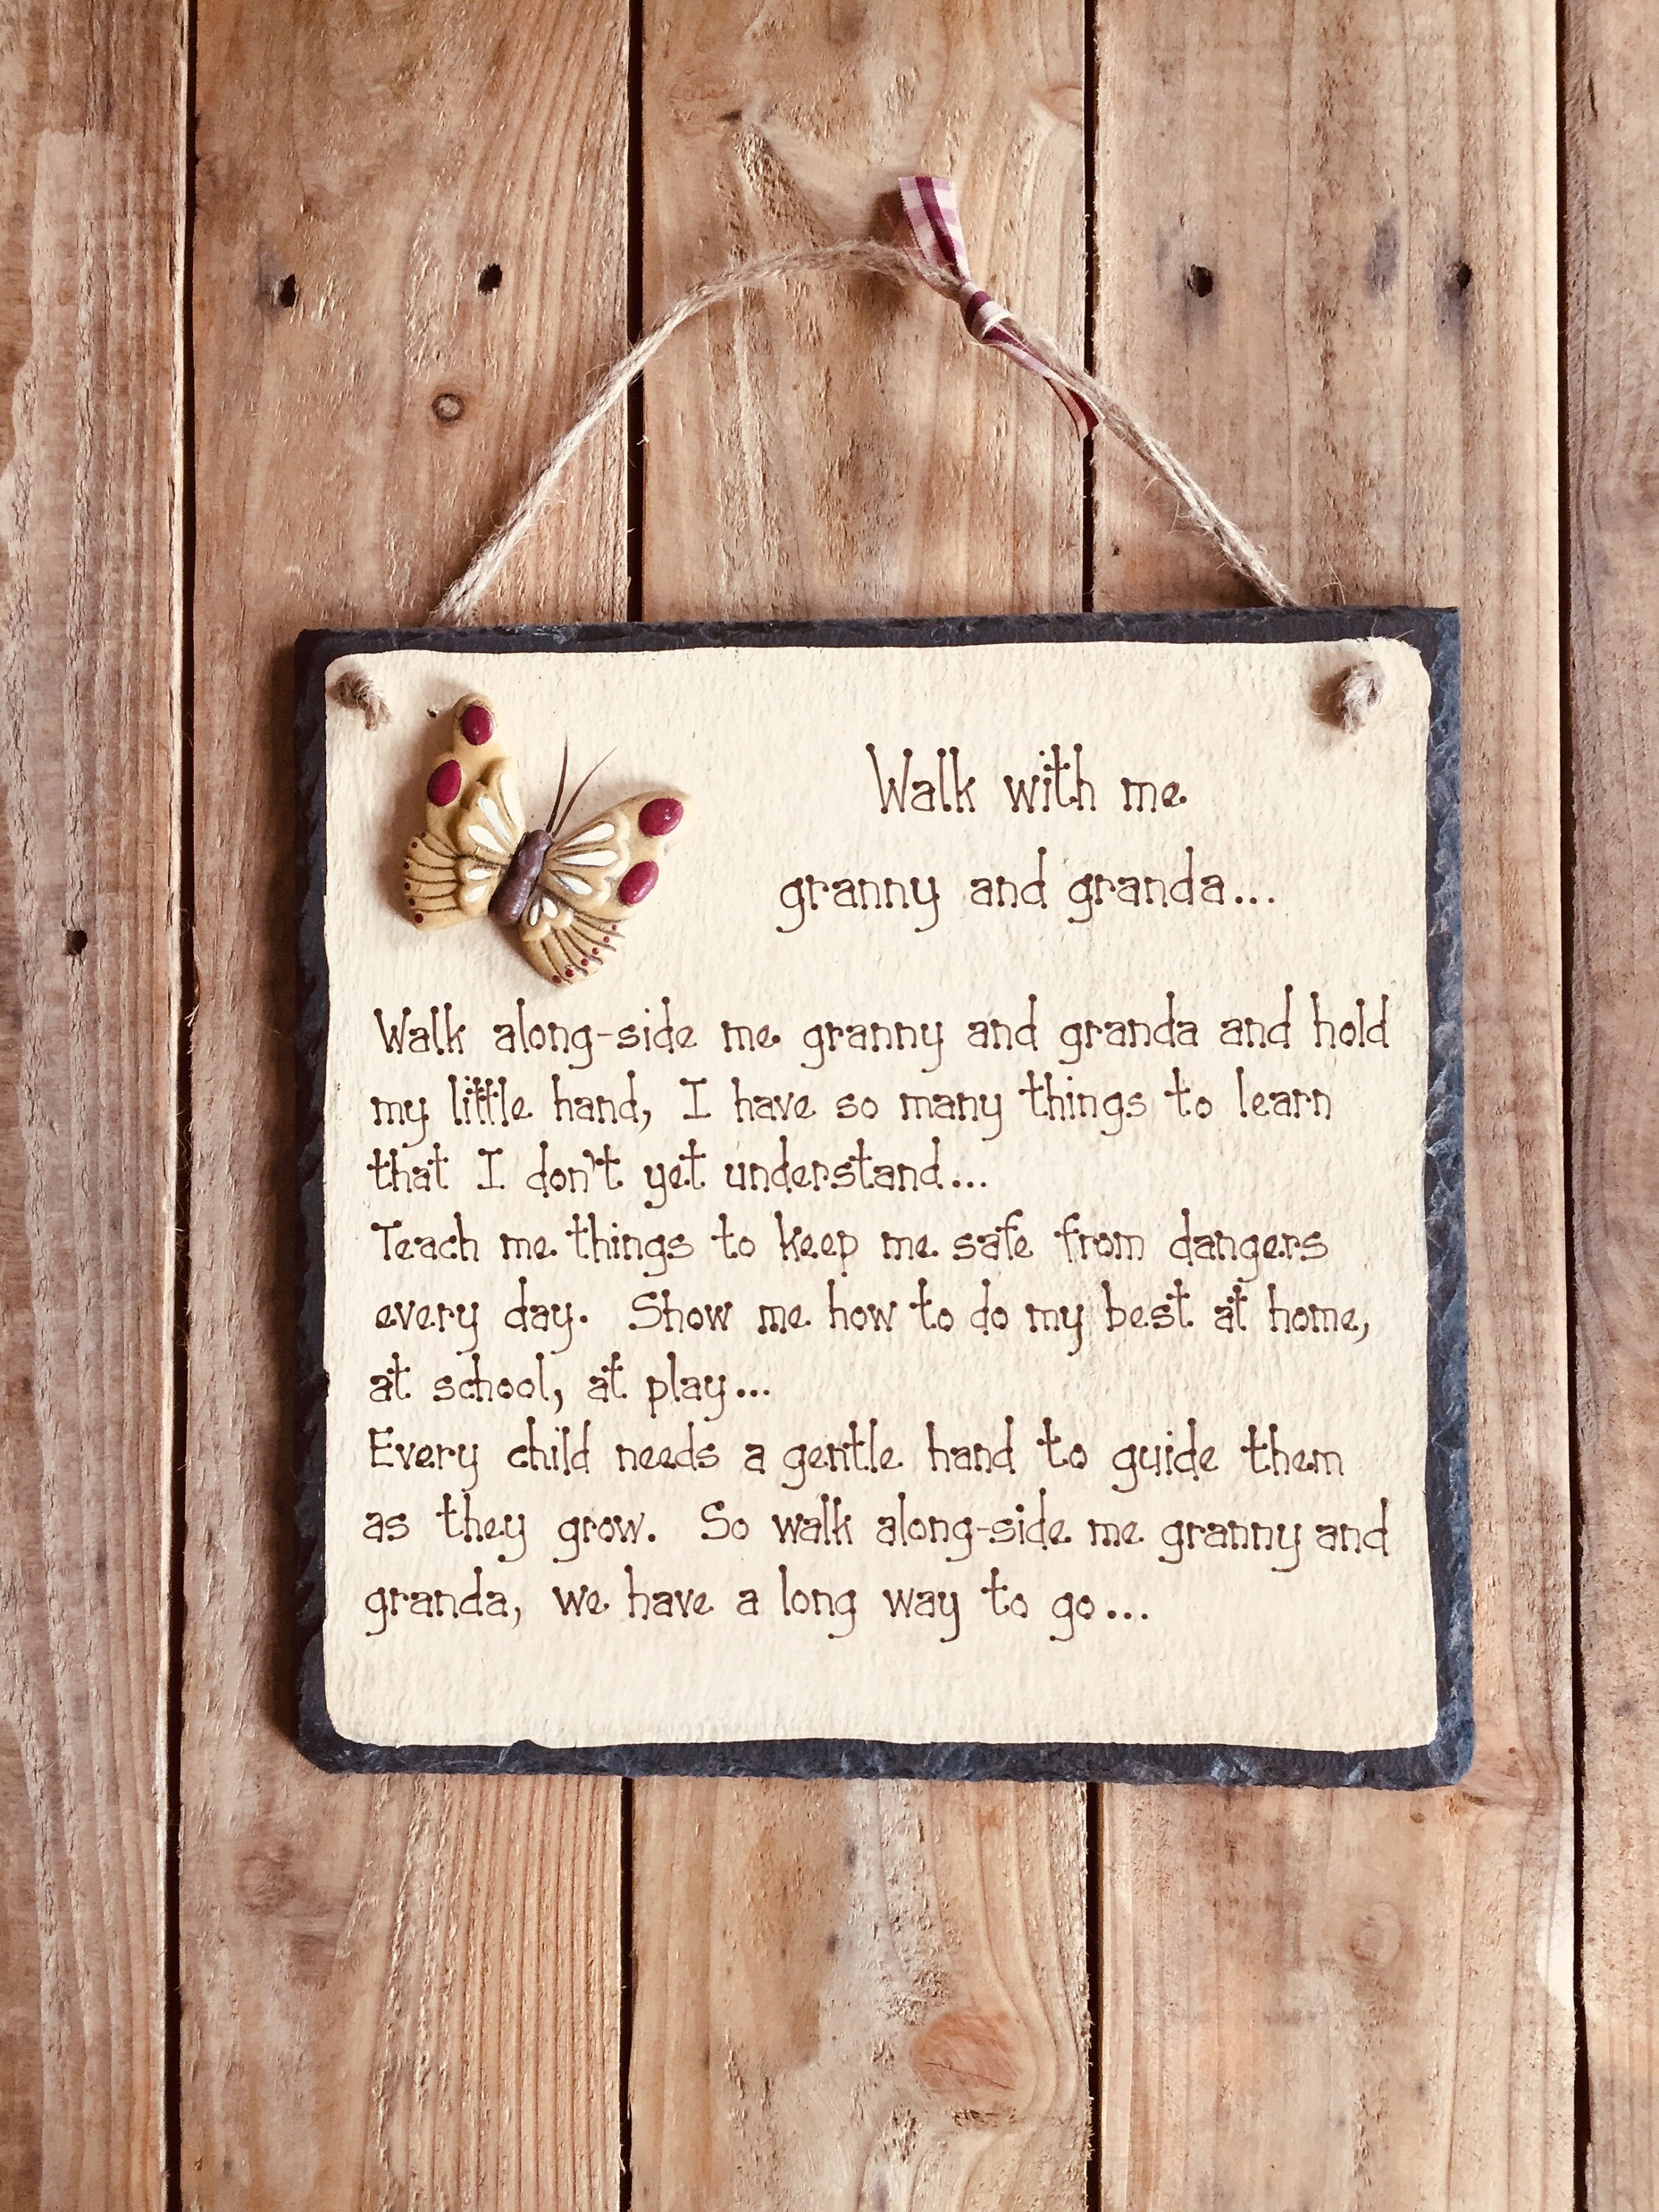 Walk with me
granny and granda...
Walk along-side me granny and granda and hold
my little hand, I have so many things to learn
that I don't yet understand...
Teach me things to keep me safe from dangers
every day. Show me how to do my best at home,
at school, at play...
Every child needs a gentle hand to guide them
as they grow. So walk along-side me granny and
granda, we have a long way to go...